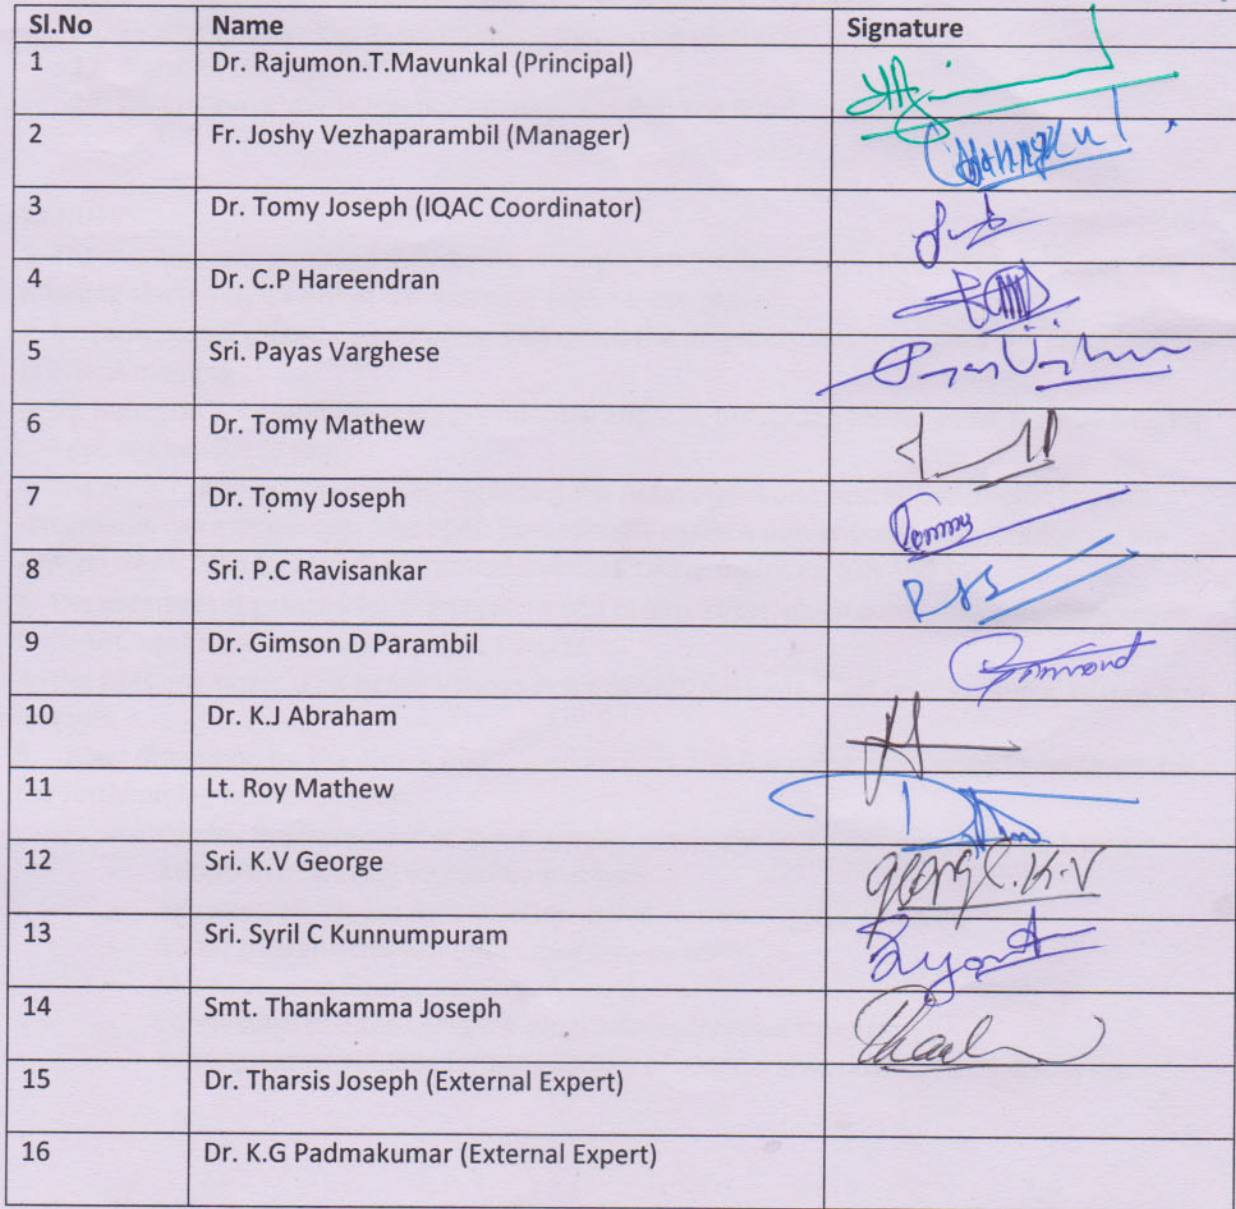 Sl.No Name Signature
1 Dr. Rajumon.T.Mavunkal (Principal)
2 Fr. Joshy Vezhaparambil (Manager)
3 Dr. Tomy Joseph (IQAC Coordinator)
4 Dr. C.P Hareendran
5 Sri. Payas Varghese
6 Dr. Tomy Mathew
7 Dr. Tomy Joseph
8 Sri. P.C Ravisankar
9 Dr. Gimson D Parambil
10 Dr. K.J Abraham
11 Lt. Roy Mathew
12 Sri. K.V George George.K.V
13 Sri. Syril C Kunnumpuram
14 Smt. Thankamma Joseph
15 Dr. Tharsis Joseph (External Expert)
16 Dr. K.G Padmakumar (External Expert)